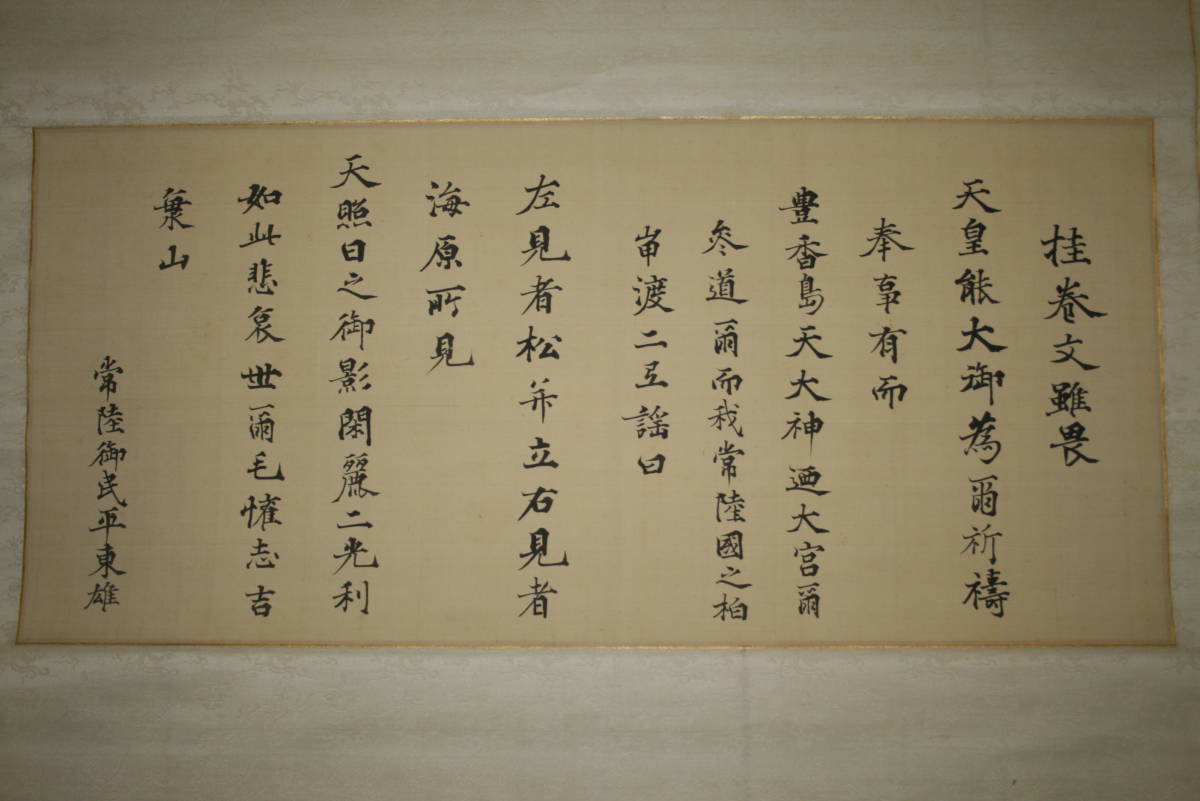 挂巻文雖畏
天皇能大御為爾祈禱
奉事有而
豊香島天大神廼大宮爾
参道爾而我常陸國之柏
甾渡二弖謡曰
左見者松並立右見者
海原所見
天照日之御影閑麗二光利
如此悲哀世爾毛慛志吉
棄山
常陸御民平東雄